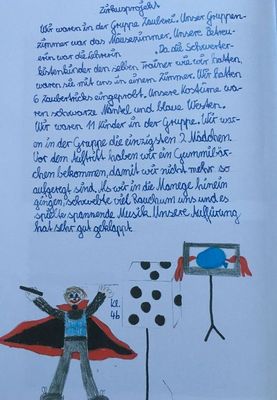 Zirkusprojekt
Wir waren in der Gruppe Zauberei. Unser Gruppen-
zimmer war das Mäusezimmer. Unsere Betreu-
erin war die Lehrerin . Da die Schwerter-
kistenkinder den selben Trainer wie wir hatten,
waren sie mit uns in einem Zimmer. Wir hatten
6 Zaubertricks eingeprobt. Unsere Kostüme wa-
ren schwarze Mäntel und blaue Westen.
Wir waren 11 Kinder in der Gruppe. Wir war-
en in der Gruppe die einzigsten 2 Mädchen.
Vor dem Auftritt haben wir ein Gummibär-
chen bekommen, damit wir nicht mehr so
aufgeregt sind. Als wir in die Manege hinein
gingen, schwebte viel Rauch um uns und es
spielte spannende Musik. Unsere Aufführung
hat sehr gut geklappt.
Kl.
4b